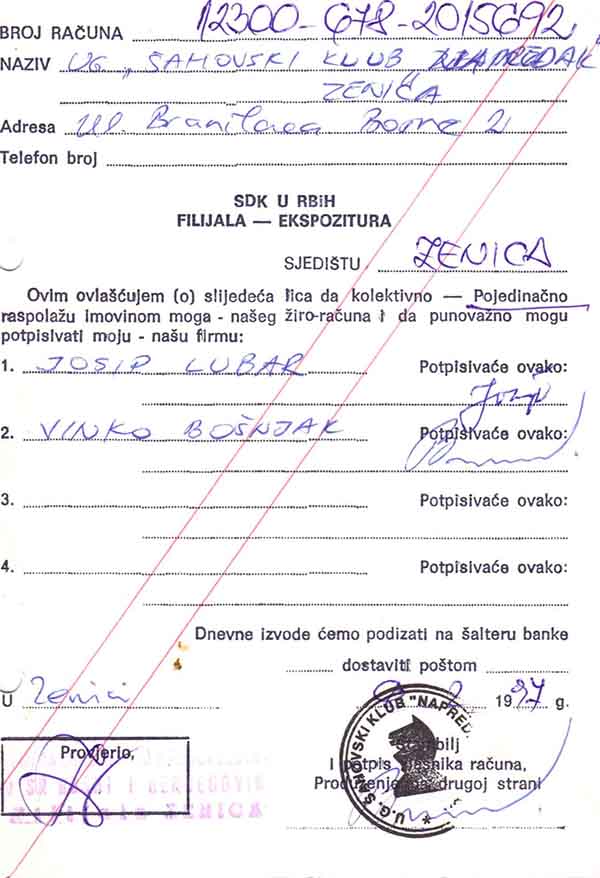 BROJ RAČUNA 12300-678-2015692
NAZIV UG. "ŠAHOVSKI KLUB NAPREDAK"
ZENICA
Adresa Ul. Branilaca Bosne 2
Telefon broj
SDK U RBiH
FILIJALA — EKSPOZITURA
SJEDIŠTU ZENICA
Ovim ovlašćujem (o) slijedeća lica da kolektivno — Pojedinačno
raspolažu imovinom moga - našeg žiro-računa i da punovažno mogu
potpisivati moju - našu firmu:
1. JOSIP LUBAR Potpisivaće ovako:
Josip
2. VINKO BOŠNJAK Potpisivaće ovako:
3. Potpisivaće ovako:
4. Potpisivaće ovako:
Dnevne izvode ćemo podizati na šalteru banke
dostaviti poštom
U Zenici 1997 g.
Provjerio,
U.G. ŠAHOVSKI KLUB "NAPRED
Štambilj
I potpis vlasnika računa,
Produženje na drugoj strani